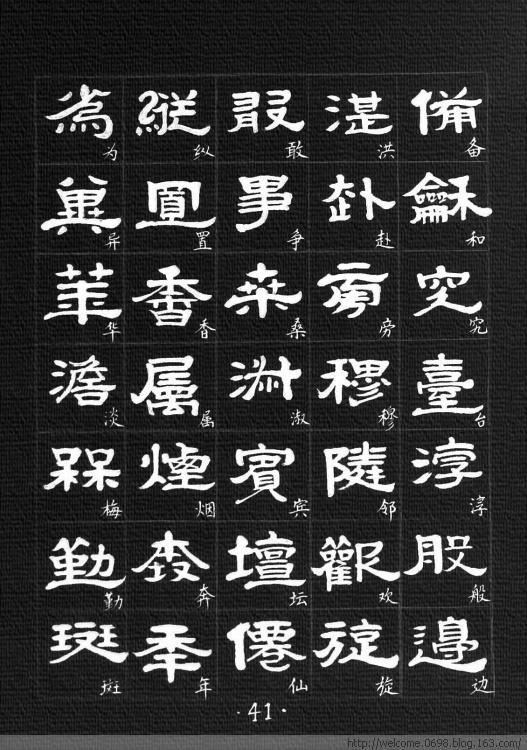 備备
龢和
究究
臺台
淳
般般
邊边
洪
赴赴
旁旁
穆穆
隣邻
歡欢
旋旋
敢敢
爭争
桑桑
淑淑
賓宾
壇坛
僊仙
縱纵
置置
香香
属属
煙烟
奔奔
年年
為为
異异
華华
澹淡
槑梅
勤勤
斑斑
·41·
http://welcome.0698.blog.163.com/